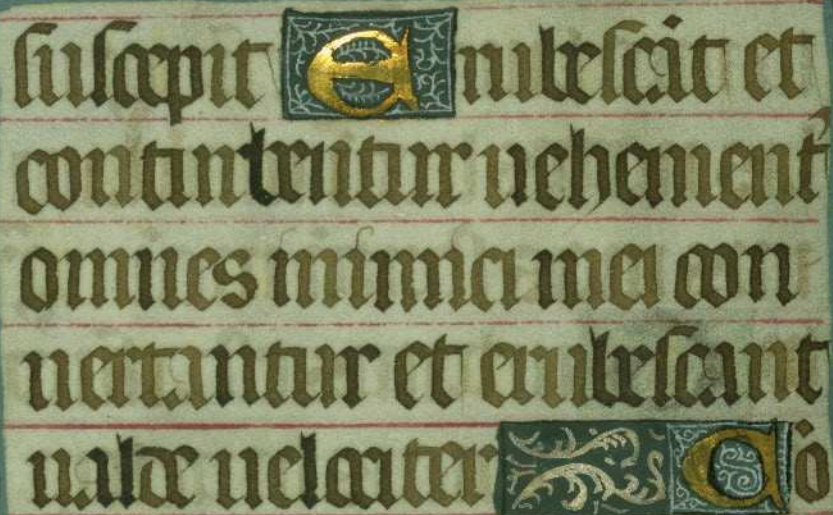 suscepit Erubescāt et
conturbentur uehement᾽
omnes inimici mei con
uertantur et erubescant
ualde uelociter Cō